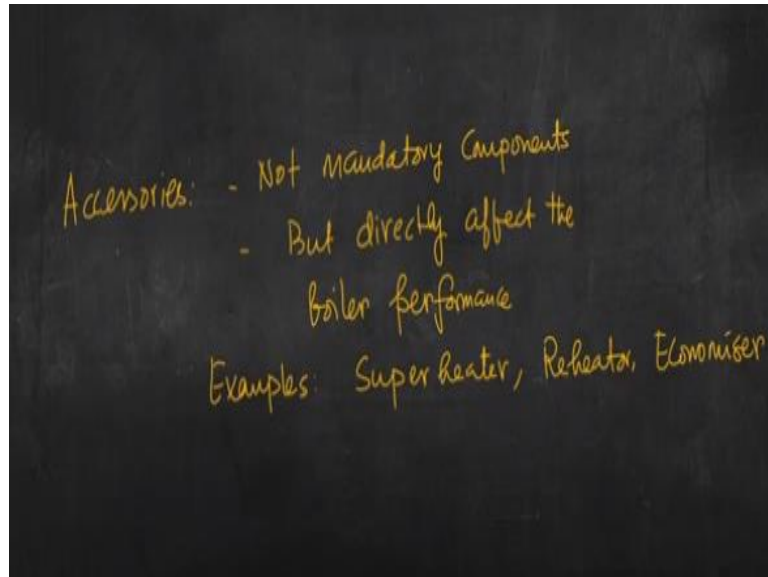 Accessories: - Not mandatory Components
- But directly affect the
boiler performance
Examples: Super heater, Reheator, Economiser